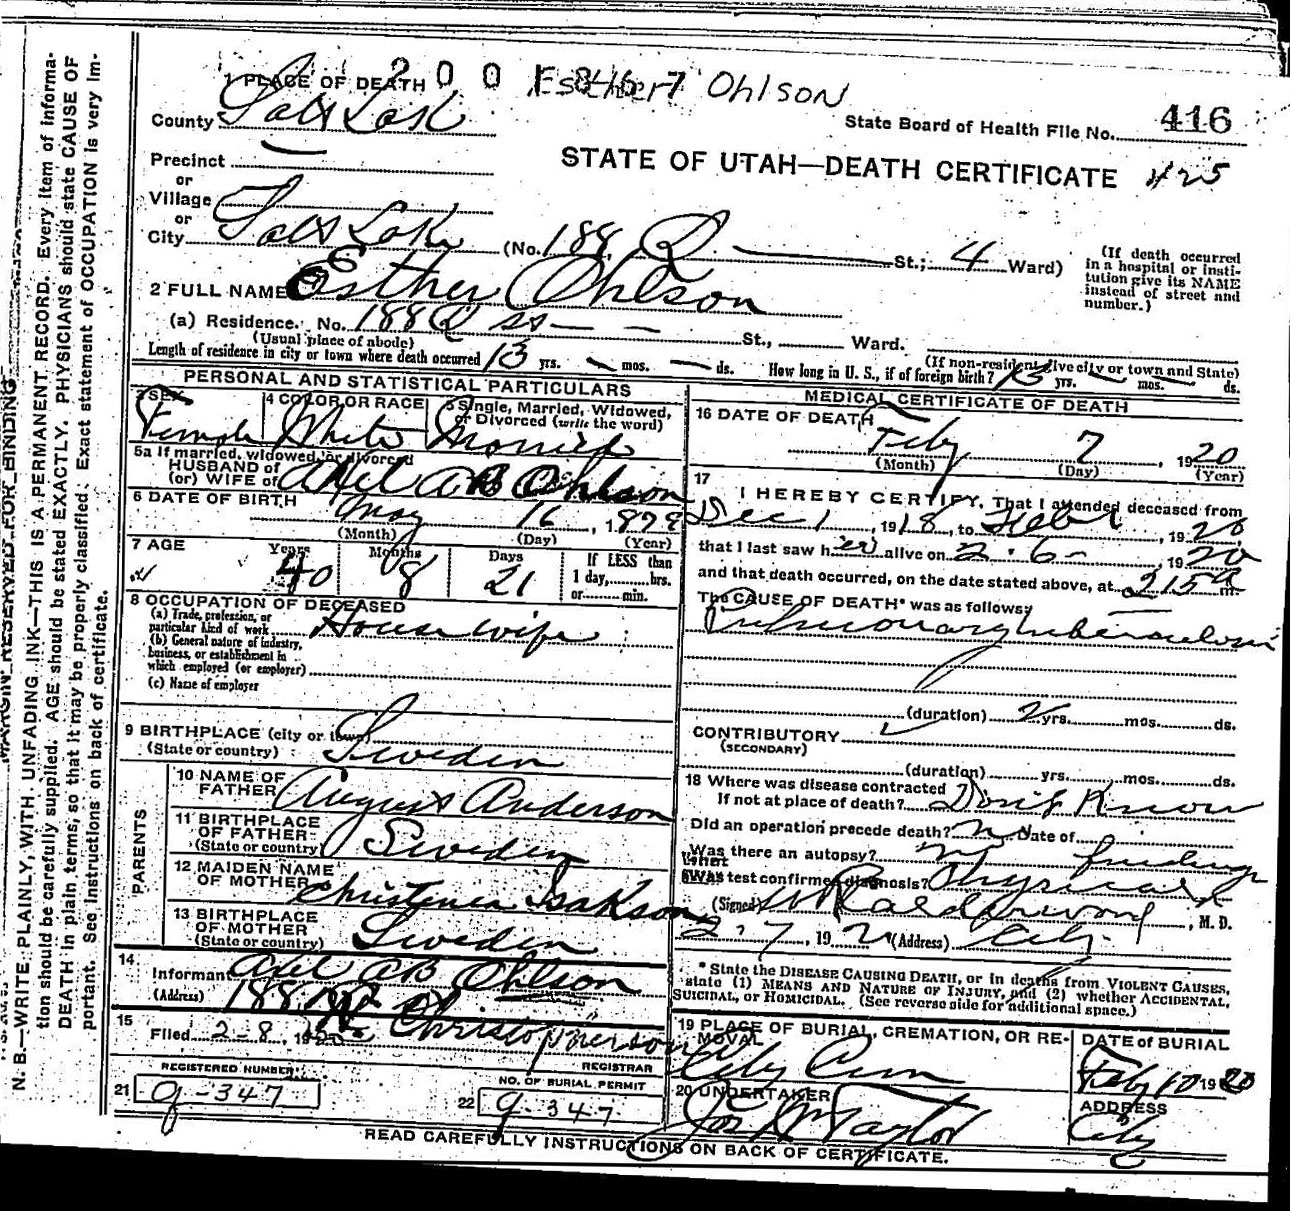 1 PLACE OF DEATH 2001 Esther Ohlson
County Salt Lake
State Board of Health File No. 416
STATE OF UTAH—DEATH CERTIFICATE 425
Precinct
or
Village
or
City Salt Lake (No. 188 Q St.; 4 Ward)
(If death occurred in a hospital or institution give its NAME instead of street and number.)
2 FULL NAME Esther Ohlson
(a) Residence. No. 188 Q St St., Ward.
(Usual place of abode)
(If non-resident give city or town and State)
Length of residence in city or town where death occurred 13 yrs. — mos. — ds. How long in U. S., if of foreign birth? yrs. — mos. — ds.
PERSONAL AND STATISTICAL PARTICULARS
3 SEX Female
4 COLOR OR RACE White
5 Single, Married, Widowed, or Divorced (write the word) Married
5a If married, widowed, or divorced
HUSBAND of
(or) WIFE of Axel A B Ohlson
6 DATE OF BIRTH May 16, 1879
(Month) (Day) (Year)
7 AGE Years 40 Months 8 Days 21 If LESS than 1 day, hrs. or min.
8 OCCUPATION OF DECEASED
(a) Trade, profession, or particular kind of work House wife
(b) General nature of industry, business, or establishment in which employed (or employer)
(c) Name of employer
9 BIRTHPLACE (city or town)
(State or country) Sweden
PARENTS
10 NAME OF FATHER August Anderson
11 BIRTHPLACE OF FATHER (State or country) Sweden
12 MAIDEN NAME OF MOTHER Christena Isakson
13 BIRTHPLACE OF MOTHER (State or country) Sweden
14 Informant Axel A B Ohlson
(Address) 188
15 Filed 2-8, 19 Christopherson
REGISTRAR
REGISTERED NUMBER
21 g-347
NO. OF BURIAL PERMIT
22 g-347
MEDICAL CERTIFICATE OF DEATH
16 DATE OF DEATH Feby 7, 1920
(Month) (Day) (Year)
17 I HEREBY CERTIFY, That I attended deceased from
Dec 1, 1918, to 1920
that I last saw her alive on 2-6- 1920
and that death occurred, on the date stated above, at 215 a m.
The CAUSE OF DEATH* was as follows:
Pulmonary tuberculosis
(duration) 2 yrs. mos. ds.
CONTRIBUTORY
(SECONDARY)
(duration) yrs. mos. ds.
18 Where was disease contracted
If not at place of death? Don't Know
Did an operation precede death? no Date of
Was there an autopsy? no
What test confirmed diagnosis? Physical findings
(Signed) M. D.
2-7, 1920 (Address) City
* State the DISEASE CAUSING DEATH, or in deaths from VIOLENT CAUSES, state (1) MEANS AND NATURE OF INJURY, and (2) whether ACCIDENTAL, SUICIDAL, or HOMICIDAL. (See reverse side for additional space.)
19 PLACE OF BURIAL, CREMATION, OR REMOVAL City Cem
DATE of BURIAL Feby 10 1920
20 UNDERTAKER Jos Wm Taylor
ADDRESS City
READ CAREFULLY INSTRUCTIONS ON BACK OF CERTIFICATE.
MARGIN RESERVED FOR BINDING
N. B.—WRITE PLAINLY, WITH UNFADING INK—THIS IS A PERMANENT RECORD. Every item of information should be carefully supplied. AGE should be stated EXACTLY. PHYSICIANS should state CAUSE OF DEATH in plain terms, so that it may be properly classified. Exact statement of OCCUPATION is very important. See instructions on back of certificate.